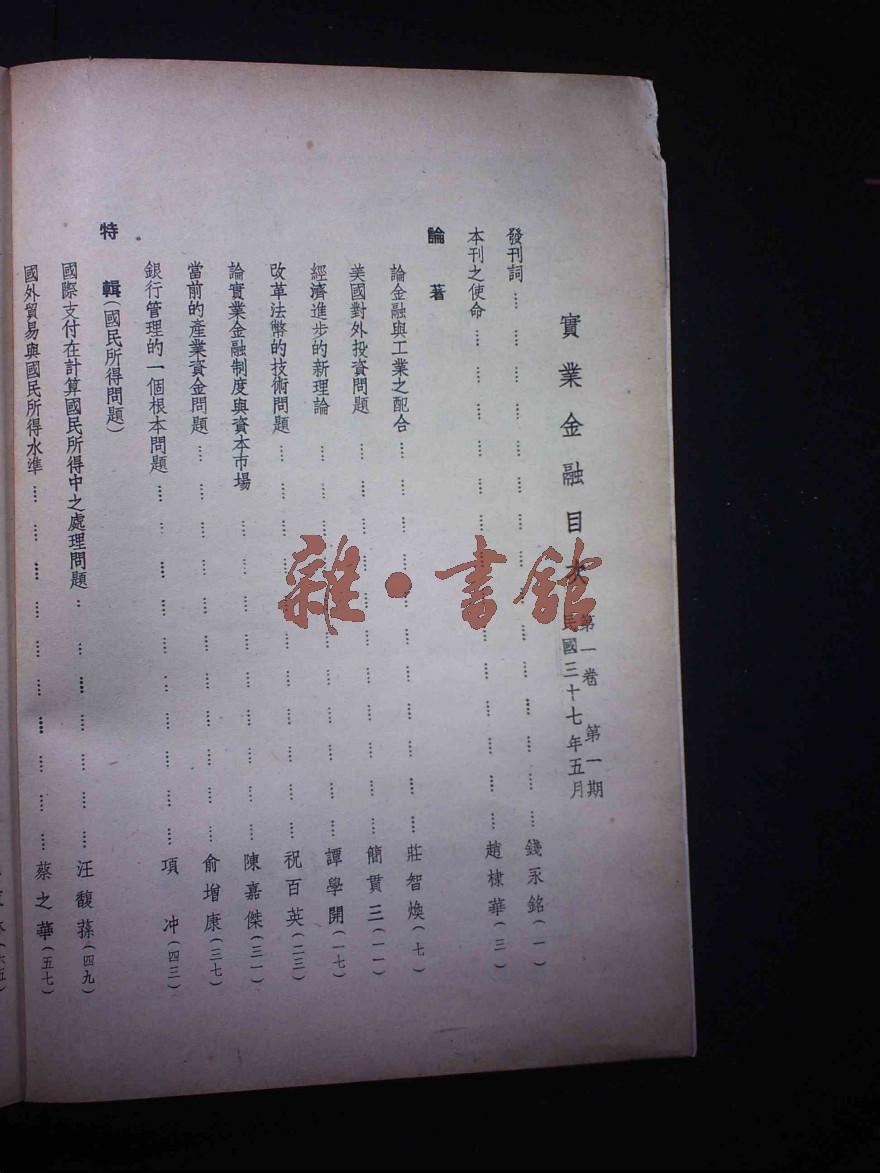 實業金融目次
第一卷 第一期
民國三十七年五月
發刊詞 錢永銘(一)
本刊之使命 趙棣華(三)
論著
論金融與工業之配合 莊智煥(七)
美國對外投資問題 簡貫三(一一)
經濟進步的新理論 譚學開(一七)
改革法幣的技術問題 祝百英(二三)
論實業金融制度與資本市場 陳嘉傑(三一)
當前的產業資金問題 俞增康(三七)
銀行管理的一個根本問題 項冲(四三)
特輯(國民所得問題)
國際支付在計算國民所得中之處理問題 汪馥蓀(四九)
國外貿易與國民所得水準 蔡之華(五七)
雜·書館